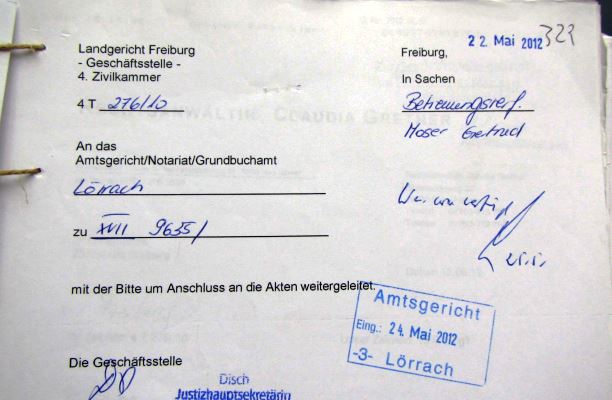 Landgericht Freiburg
- Geschäftsstelle -
4. Zivilkammer
4 T 276/10
Freiburg, 22. Mai 2012
In Sachen
Moser Gertrud
An das
Amtsgericht/Notariat/Grundbuchamt
Lörrach
zu XVII 9655/
mit der Bitte um Anschluss an die Akten weitergeleitet.
Amtsgericht
Eing.: 24. Mai 2012
-3- Lörrach
Die Geschäftsstelle
Disch
Justizhauptsekretärin
CLAUDIA